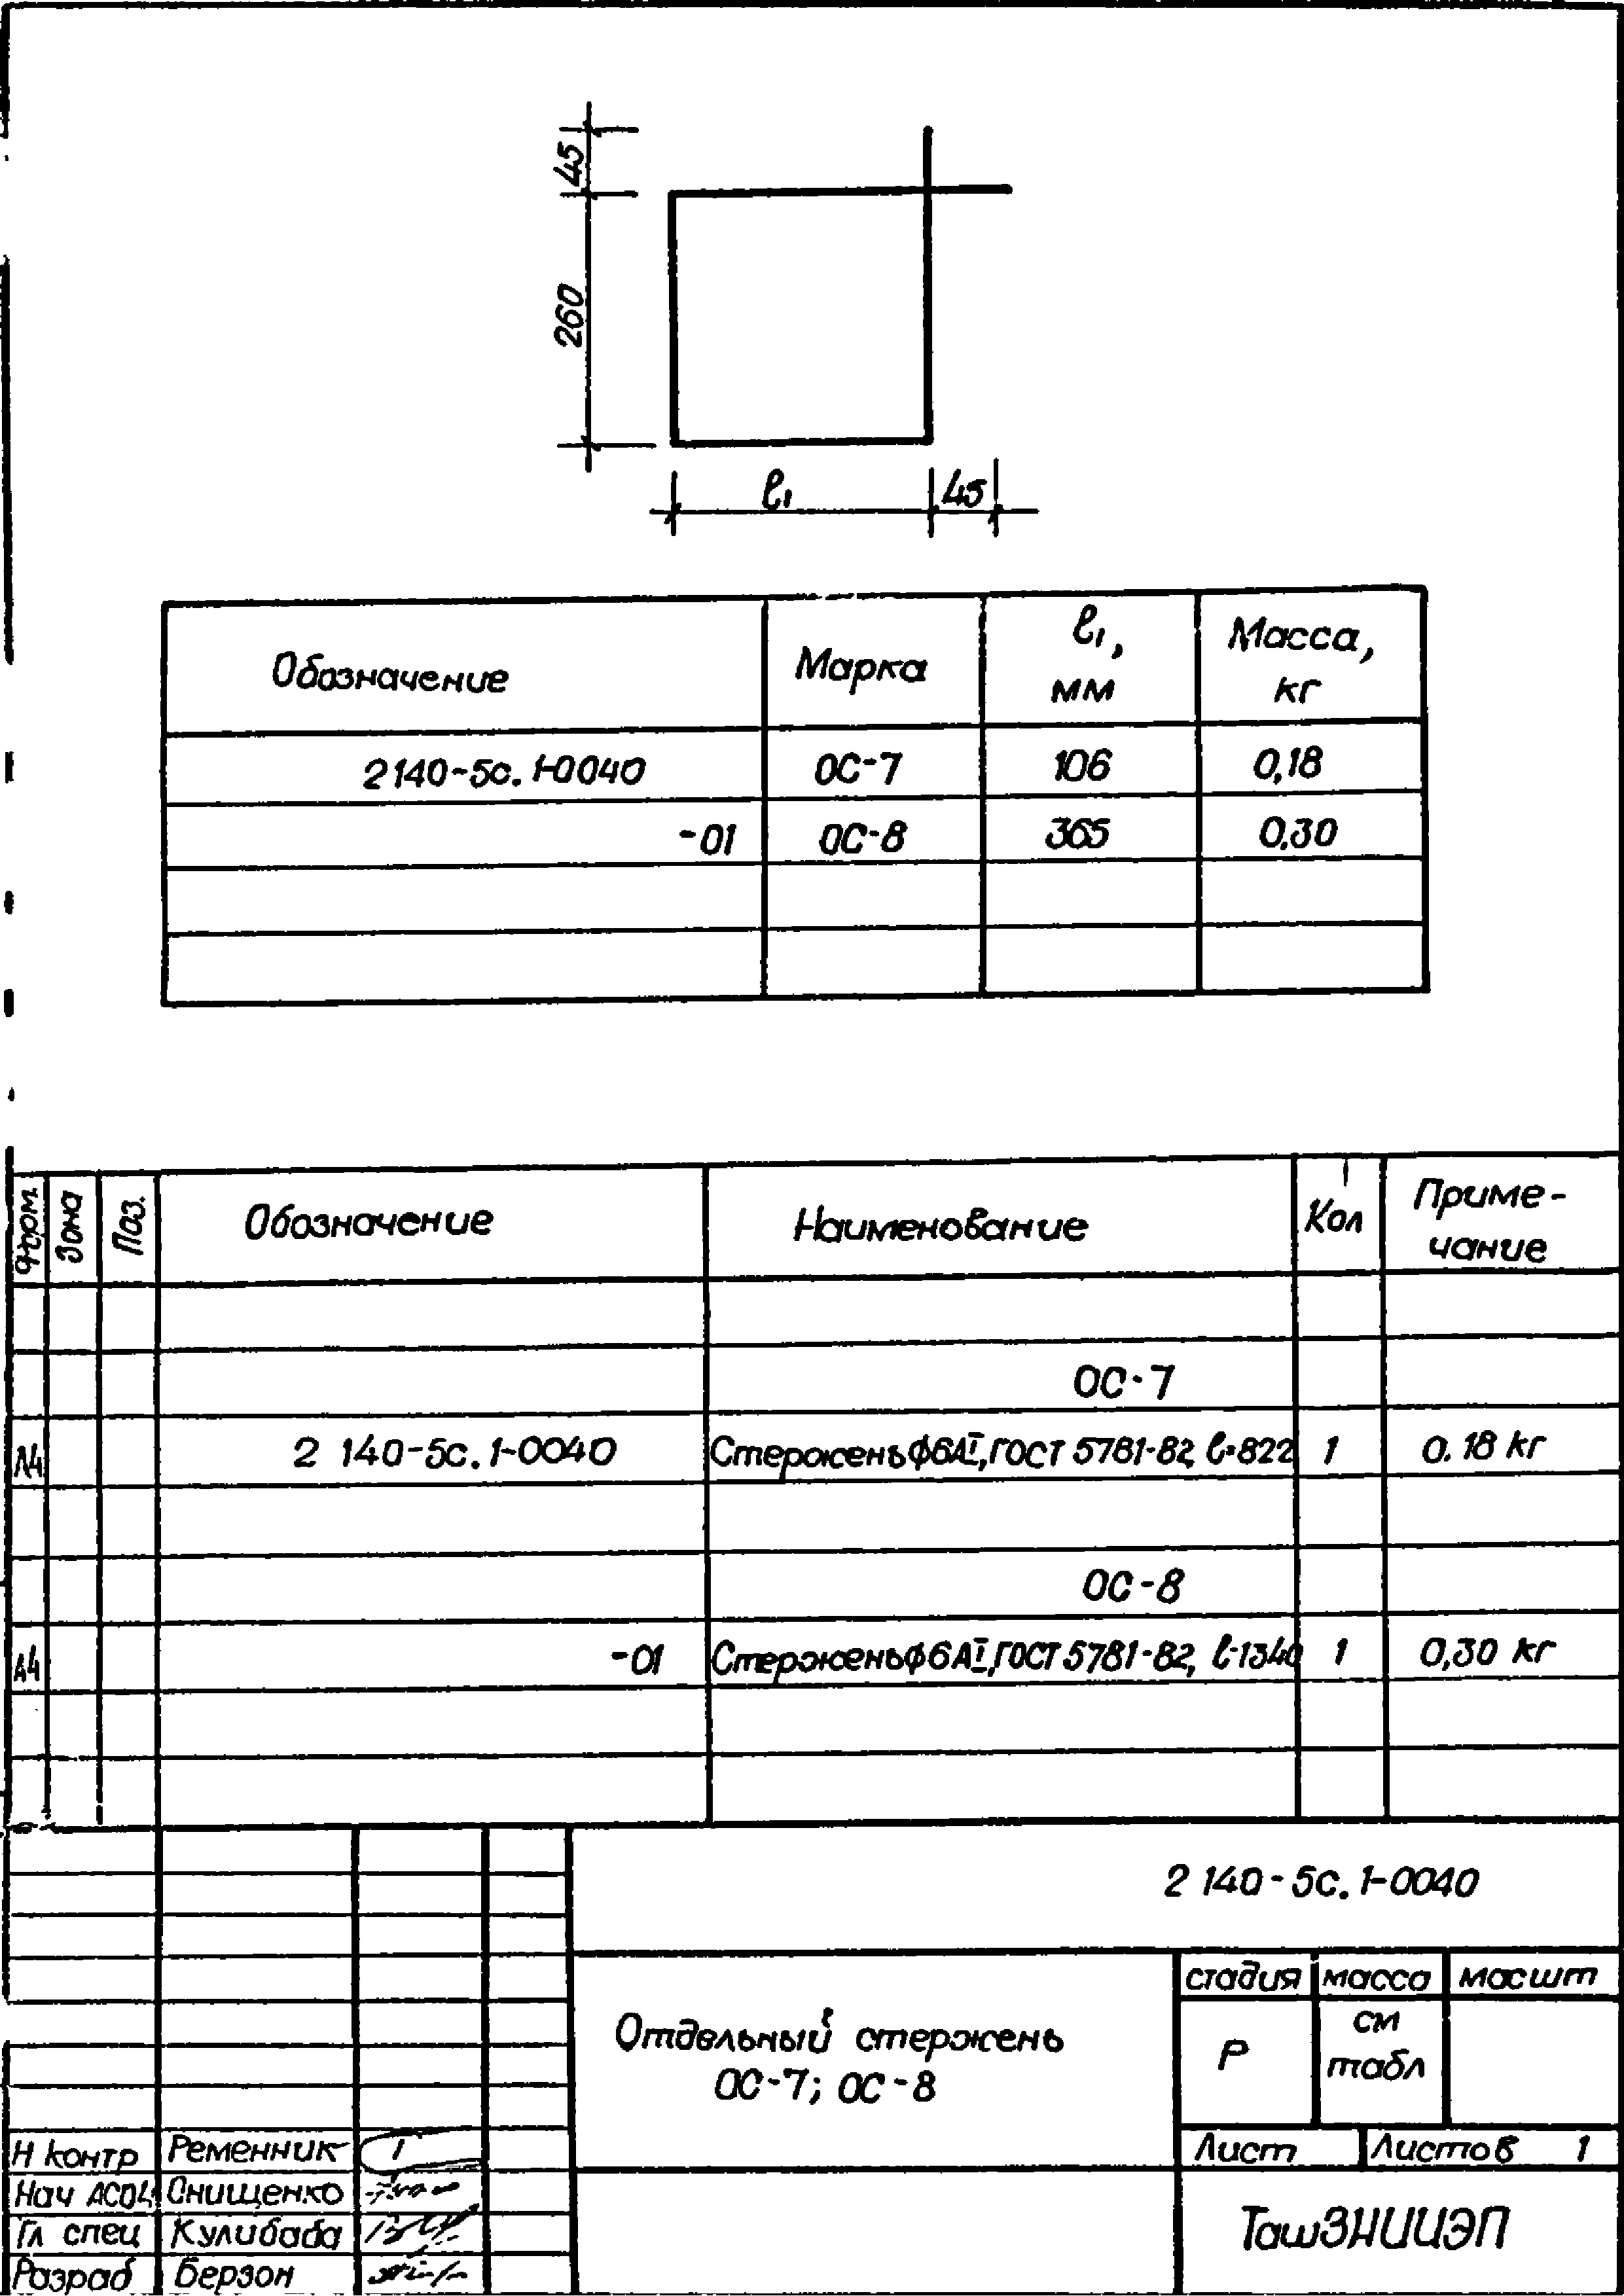 45
260
ℓ₁ 45
Обозначение Марка ℓ₁, мм Масса, кг
2140-5с.1-0040 ОС-7 106 0,18
-01 ОС-8 365 0.30
Форм. Зона Поз. Обозначение Наименование Кол Приме-
чание
ОС-7
А4 2 140-5с.1-0040 Стержень ф6АI, ГОСТ 5781-82, ℓ=822 1 0.18 кг
ОС-8
А4 -01 Стержень ф6АI, ГОСТ 5781-82, ℓ-1340 1 0,30 кг
2 140-5с.1-0040
Отдельный стержень
ОС-7; ОС-8
стадия масса масшт
Р см
табл
Лист Листов 1
ТашЗНИИЭП
Н контр Ременник
Нач Онищенко
Гл спец Кулибаба
Разраб Берзон